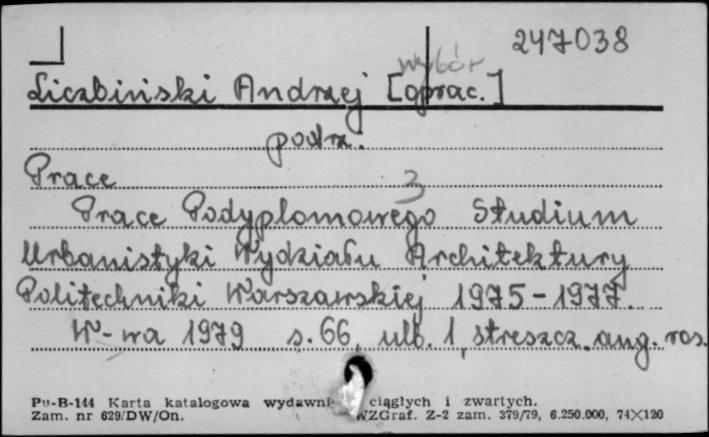 247038
wybór
Liczbiński Andrzej [oprac.]
podrz.
Prace 3
Prace Podyplomowego Studium
Urbanistyki Wydziału Architektury
Politechniki Warszawskiej 1975-1977.
W-wa 1979 s. 66, ulb. 1, streszcz. ang. ros.
Pu-B-144 Karta katalogowa wydawni ciągłych i zwartych.
Zam. nr 629/DW/On. WZGraf. Z-2 zam. 379/79, 6.250.000, 74X120